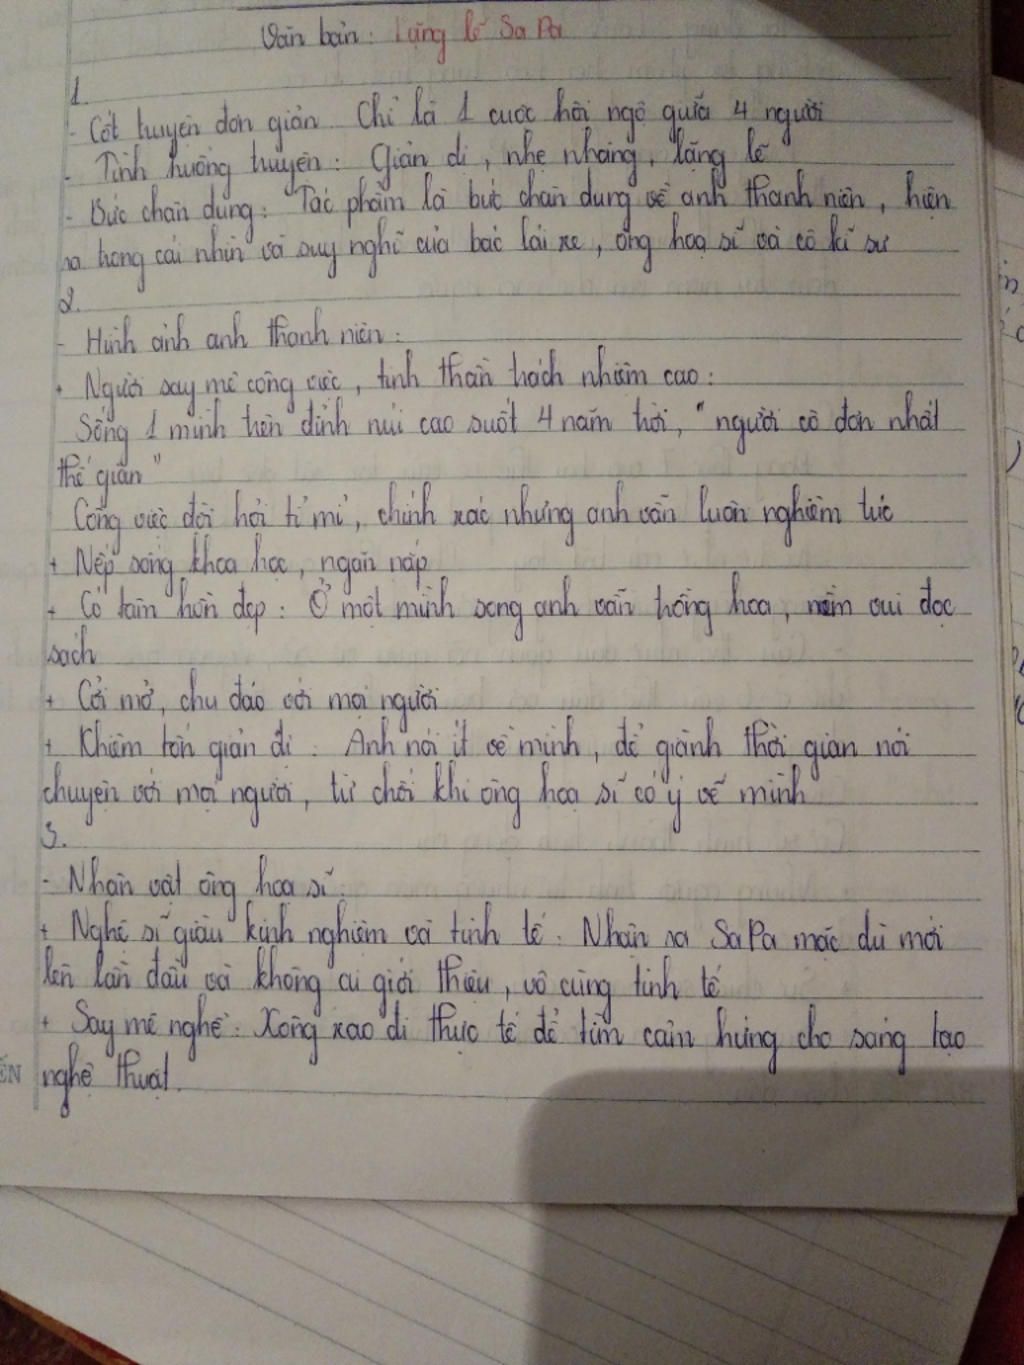 Văn bản: Lặng lẽ Sa Pa
1.
- Cốt truyện đơn giản Chỉ là 1 cuộc hội ngộ giữa 4 người
- Tình huống truyện: Giản dị, nhẹ nhàng, lặng lẽ
- Bức chân dung: Tác phẩm là bức chân dung về anh thanh niên, hiện
ra trong cái nhìn và suy nghĩ của bác lái xe, ông hoạ sĩ và cô kĩ sư
2.
- Hình ảnh anh thanh niên:
+ Người say mê công việc, tinh thần trách nhiệm cao:
Sống 1 mình trên đỉnh núi cao suốt 4 năm trời, "người cô đơn nhất
thế gian"
Công việc đòi hỏi tỉ mỉ, chính xác nhưng anh vẫn luôn nghiêm túc
+ Nếp sống khoa học, ngăn nắp
+ Có tâm hồn đẹp: Ở một mình song anh vẫn trồng hoa, niềm vui đọc
sách
+ Cởi mở, chu đáo với mọi người
+ Khiêm tốn giản dị: Anh nói ít về mình, để giành thời gian nói
chuyện với mọi người, từ chối khi ông hoạ sĩ có ý vẽ mình
3.
- Nhân vật ông hoạ sĩ:
+ Nghệ sĩ giàu kinh nghiệm và tinh tế: Nhận ra SaPa mặc dù mới
lên lần đầu và không ai giới thiệu, vô cùng tinh tế
+ Say mê nghề: Xông xáo đi thực tế để tìm cảm hứng cho sáng tạo
nghệ thuật.